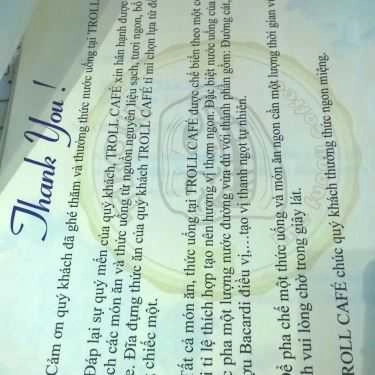 Thank You !
Cảm ơn quý khách đã ghé thăm và thưởng thức nước uống tại TROLL
Đáp lại sự quý mến của quý khách, TROLL CAFÉ xin hân hạnh được
ch các món ăn và thức uống từ nguồn nguyên liệu sạch, tươi ngon, bổ
e. Đĩa đựng thức ăn của quý khách TROLL CAFÉ tỉ mỉ chọn lựa từ
chiếc một.
ất cả món ăn, thức uống tại TROLL CAFÉ được chế biến theo một
i tỉ lệ thích hợp tạo nên hương vị thơm ngon. Đặc biệt nước uống của
c pha một lượng nước đường vừa đủ với thành phần gồm: Đường cát,
ợu Bacardi điều vị,…tạo vị thanh ngọt tự nhiên.
ể pha chế một thức uống và món ăn ngon cần một lượng thời gian
h vui lòng chờ trong giây lát.
ROLL CAFÉ chúc quý khách thưởng thức ngon miệng.